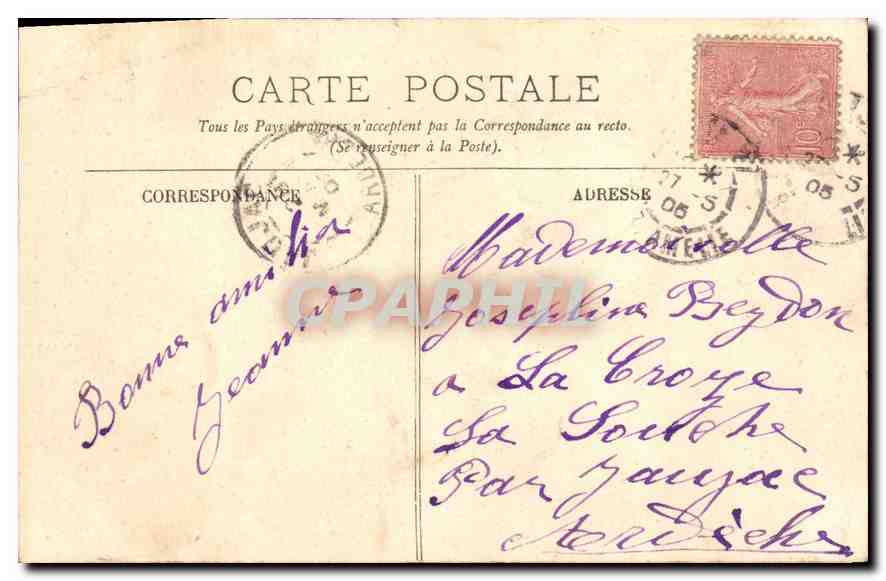 CARTE POSTALE
Tous les Pays étrangers n'acceptent pas la Correspondance au recto.
(Se renseigner à la Poste).
CORRESPONDANCE
ADRESSE
Bonne amitié
Jeanne
Mademoiselle
Josephine Beydon
a La Croze
La Souche
Par Jaujac
Ardèche
10
27
05
27
05
CPAPHIL